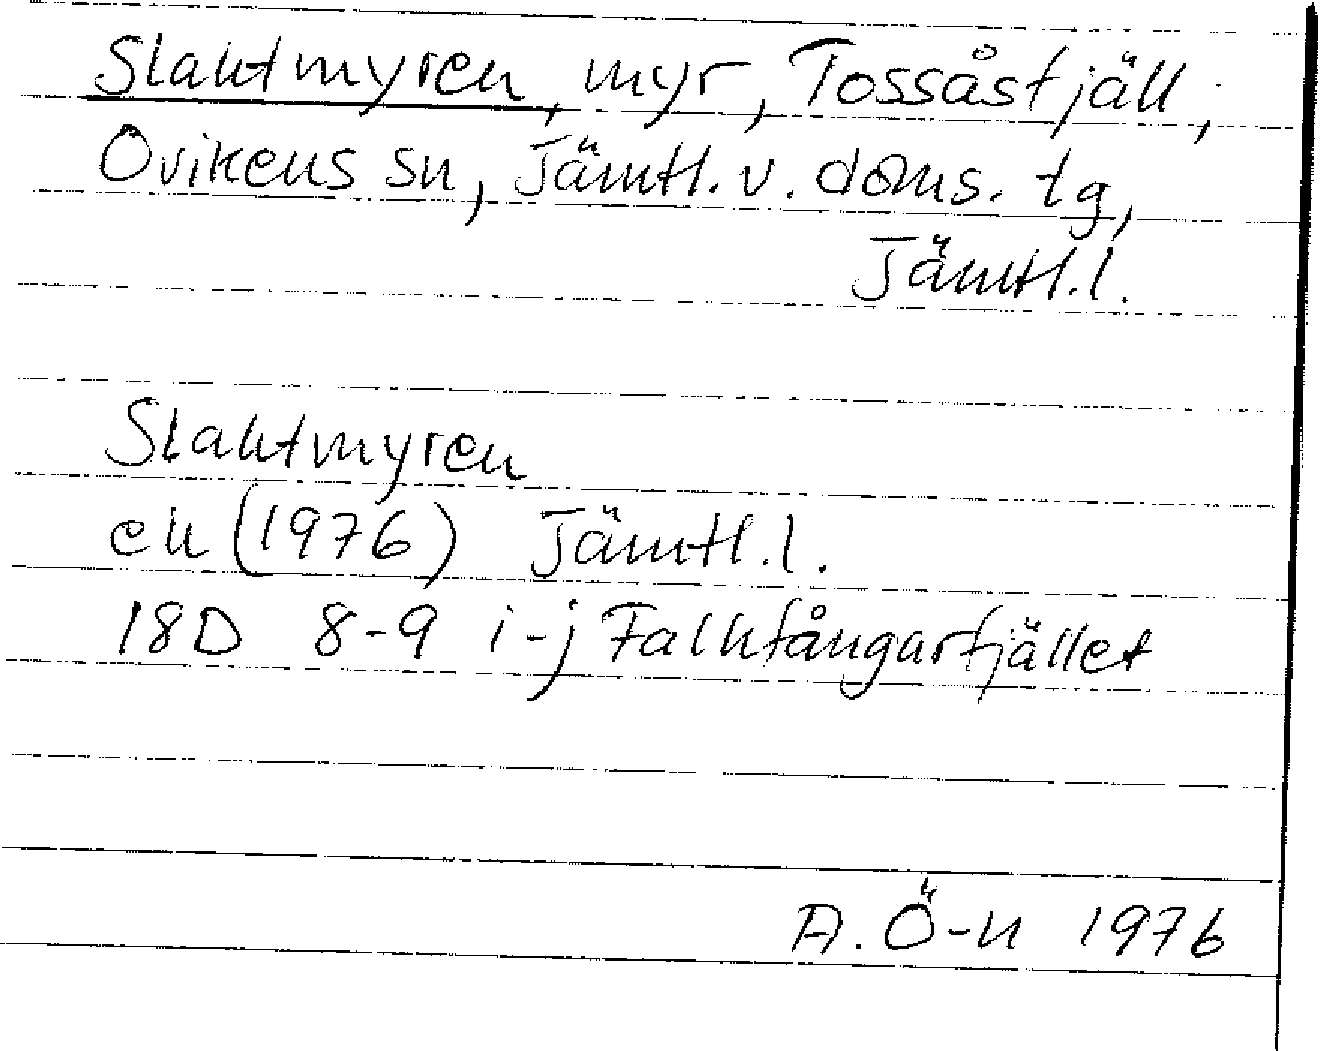 Slaktmyren, myr, Tossåsfjäll,
Ovikens sn, Jämtl. v. doms. tg,
Jämtl. l.
Slaktmyren
ek (1976) Jämtl. l.
18D 8-9 i-j Falkfångarfjället
A. Ö-n 1976